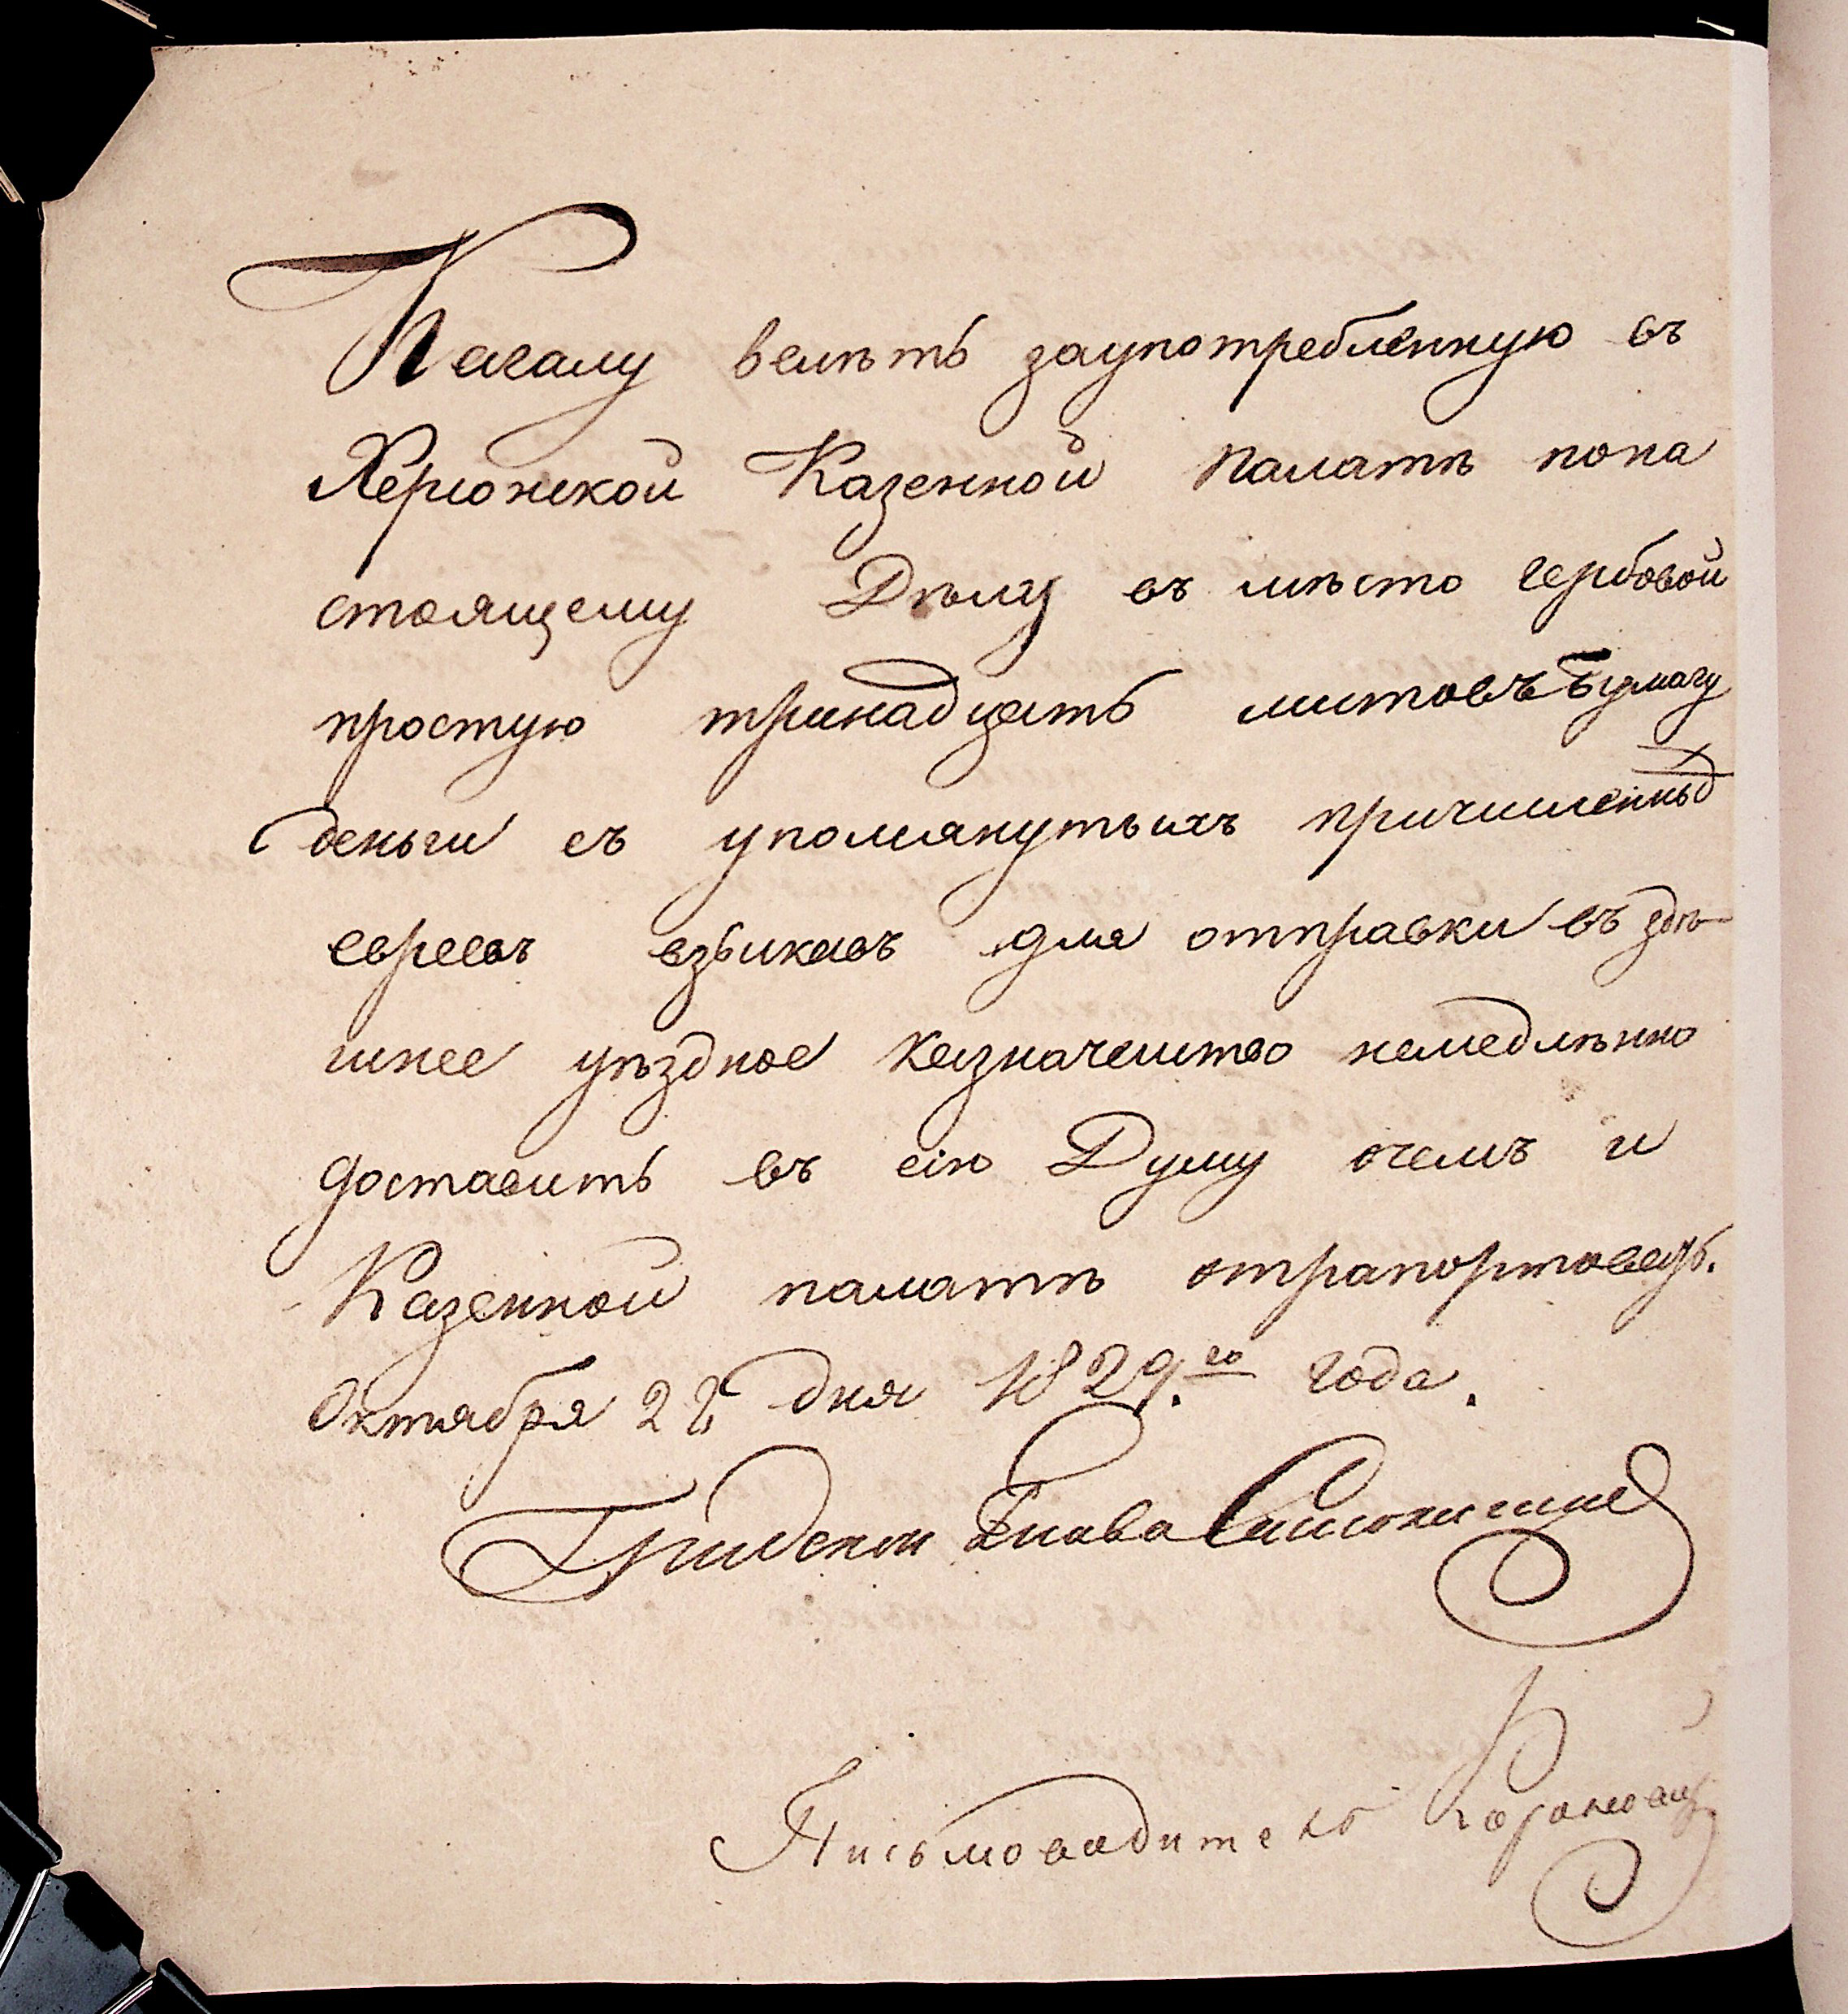 Кагалу велѣть заупотребленную въ
Херсонской Казенной Палатѣ пона
стоящему Дѣлу въ мѣсто гербовой
простую тринадцать листовъ бумагу
деньги съ упомянутыхъ причисленныхъ
евреевъ взыскавъ для отправки въ здѣ-
шнее уѣздное казначейство немедлѣнно
доставить въ сію Думу очемъ и
Казенной палатѣ отрапортовать.
Октября 22 дня 1829.го года.
Градской Глава
Письмоводитель